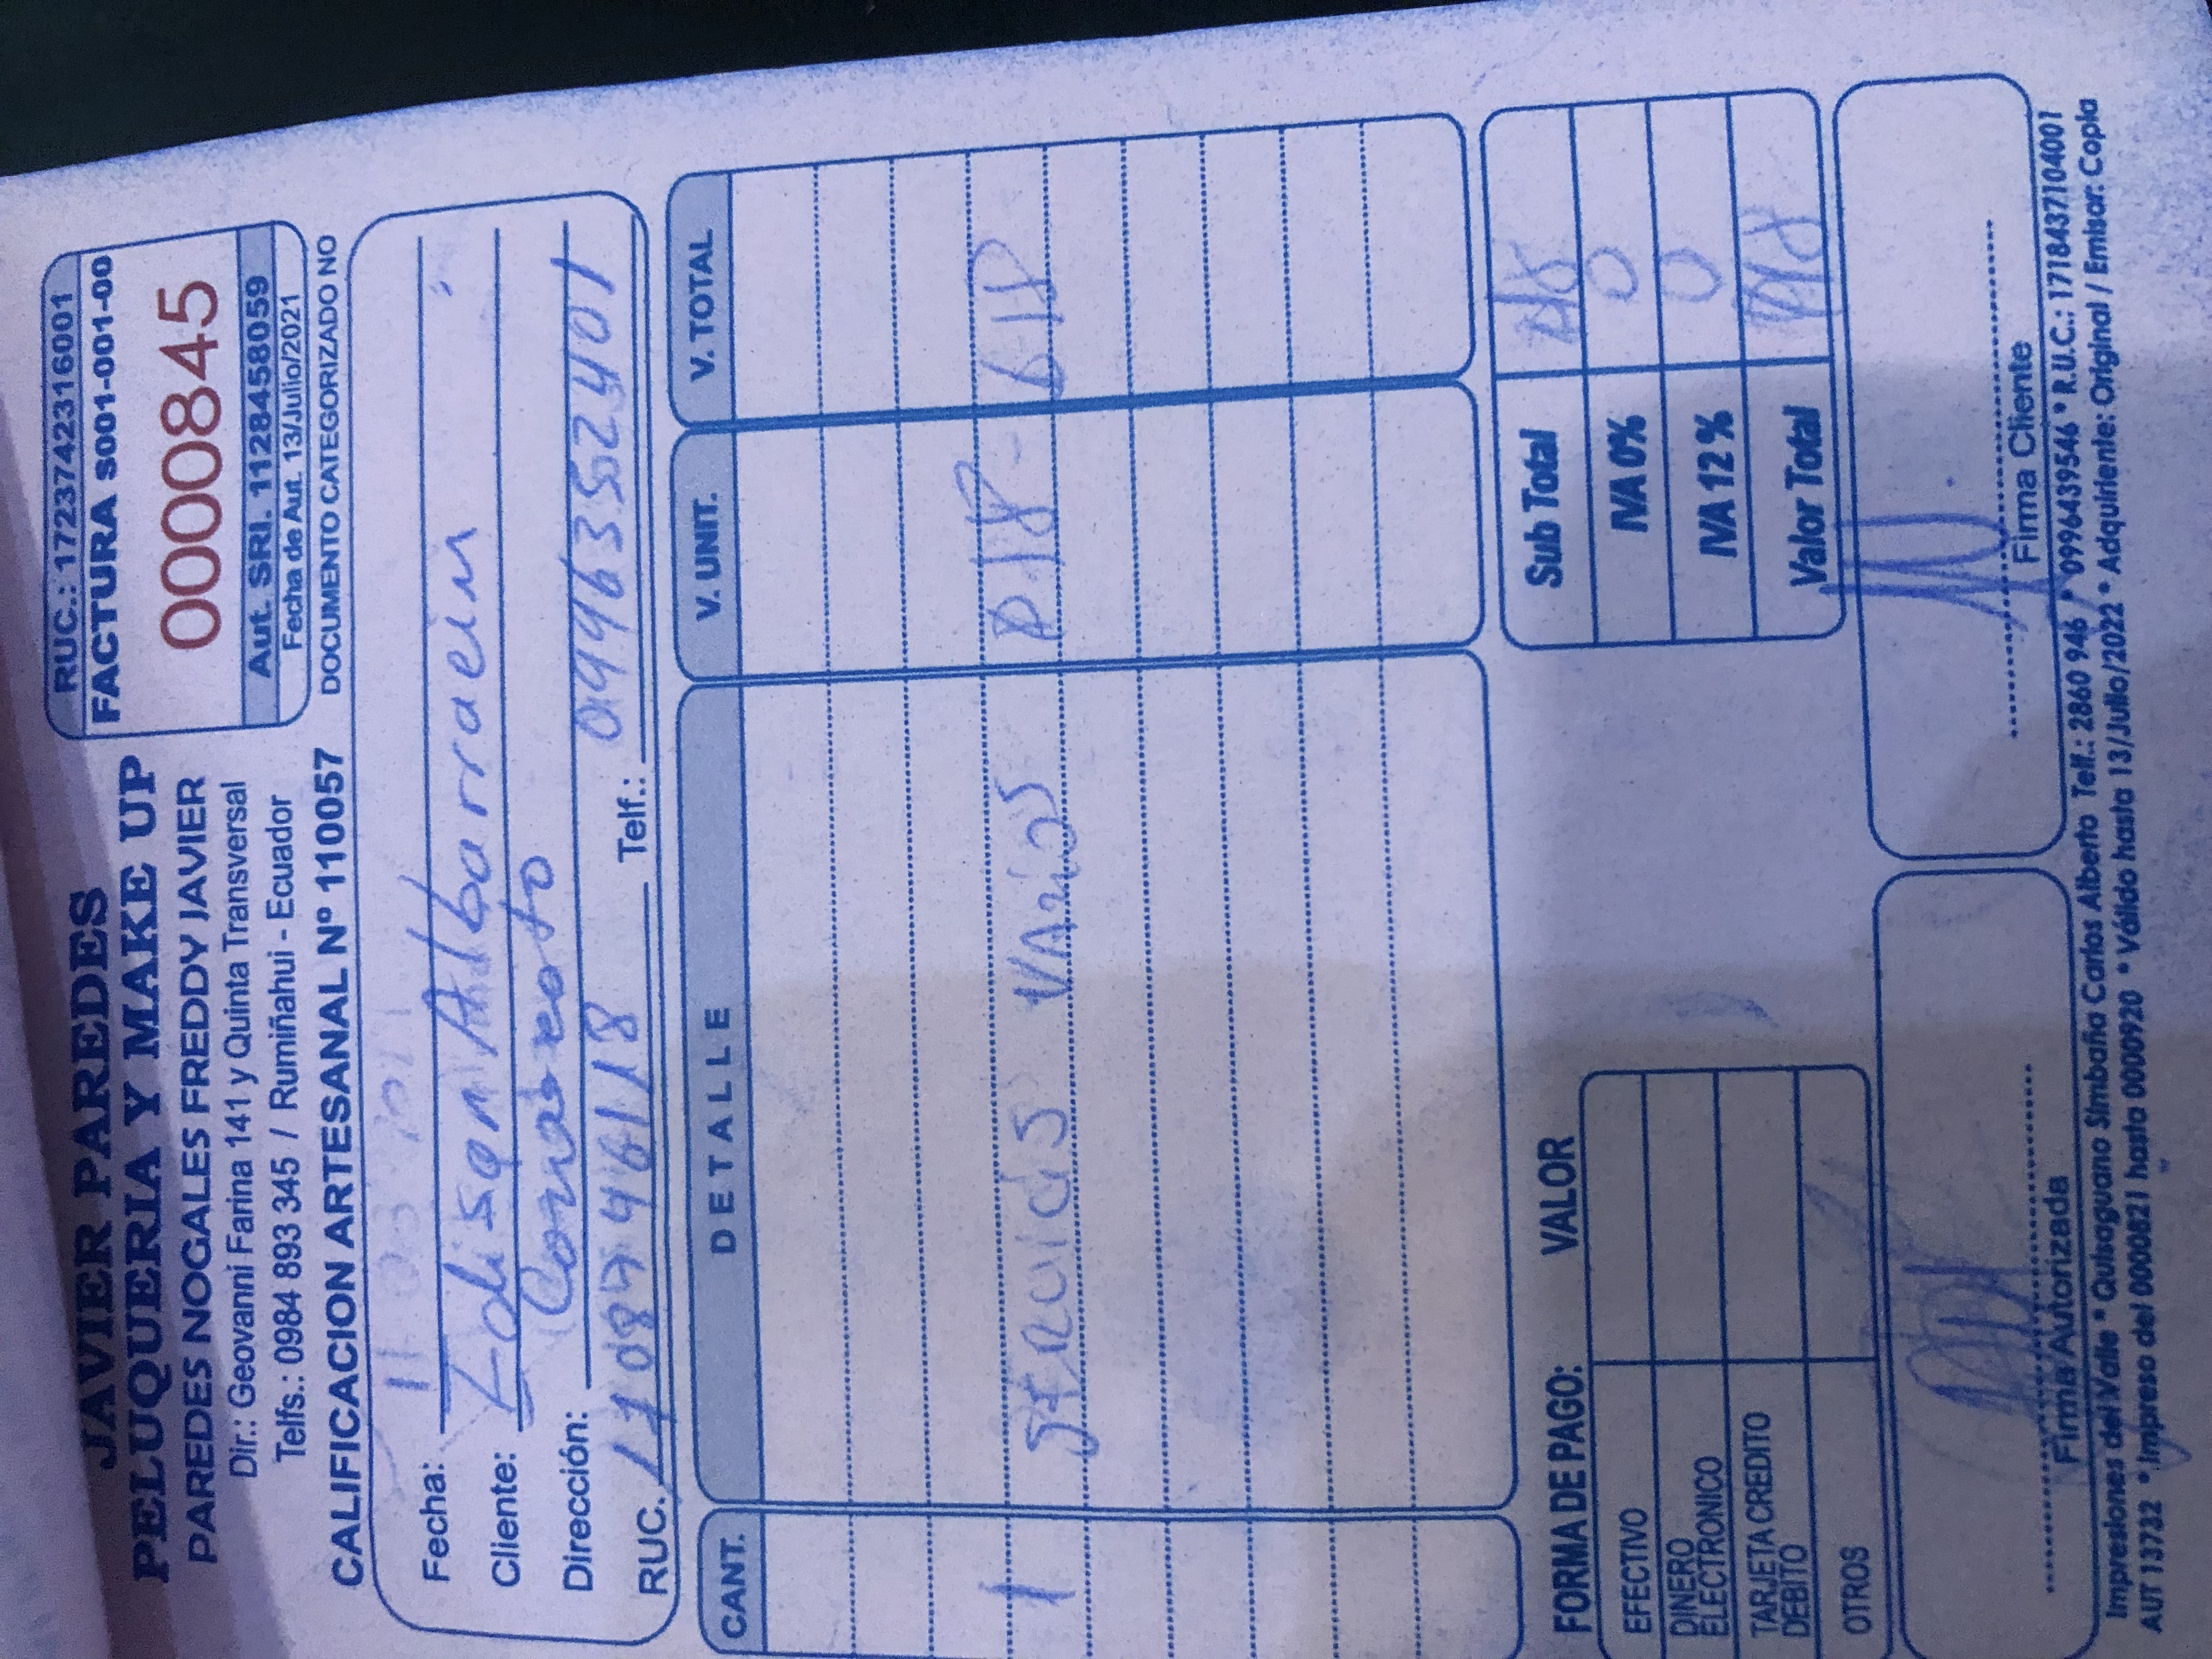 JAVIER PAREDES
PELUQUERIA Y MAKE UP
PAREDES NOGALES FREDDY JAVIER
Dir.: Geovanni Farina 141 y Quinta Transversal
Telfs.: 0984 893 345 / Rumiñahui - Ecuador
CALIFICACION ARTESANAL Nº 110057
RUC.: 1723742316001
FACTURA S001-001-00
0000845
Aut. SRI. 1128458059
Fecha de Aut. 13/Julio/2021
DOCUMENTO CATEGORIZADO NO
Fecha: 11
Cliente: Edison Albarracin
Dirección:
RUC. 1708746118 Telf.: 0996352401
CANT. DETALLE V. UNIT. V. TOTAL
1 SERVICIS VARIOS $18- $18
FORMA DE PAGO: VALOR
EFECTIVO
DINERO ELECTRONICO
TARJETA CREDITO DEBITO
OTROS
Sub Total $18
IVA 0% 0
IVA 12 % 0
Valor Total $18
Firma Autorizada
Firma Cliente
Impresiones del Valle * Quisaguano Simbaña Carlos Alberto Telf.: 2860 946 * 0996439546 * R.U.C.: 1718437104001
AUT 13732 * Impreso del 0000821 hasta 0000920 * Válido hasta 13/Julio/2022 * Adquiriente: Original / Emisor: Copia